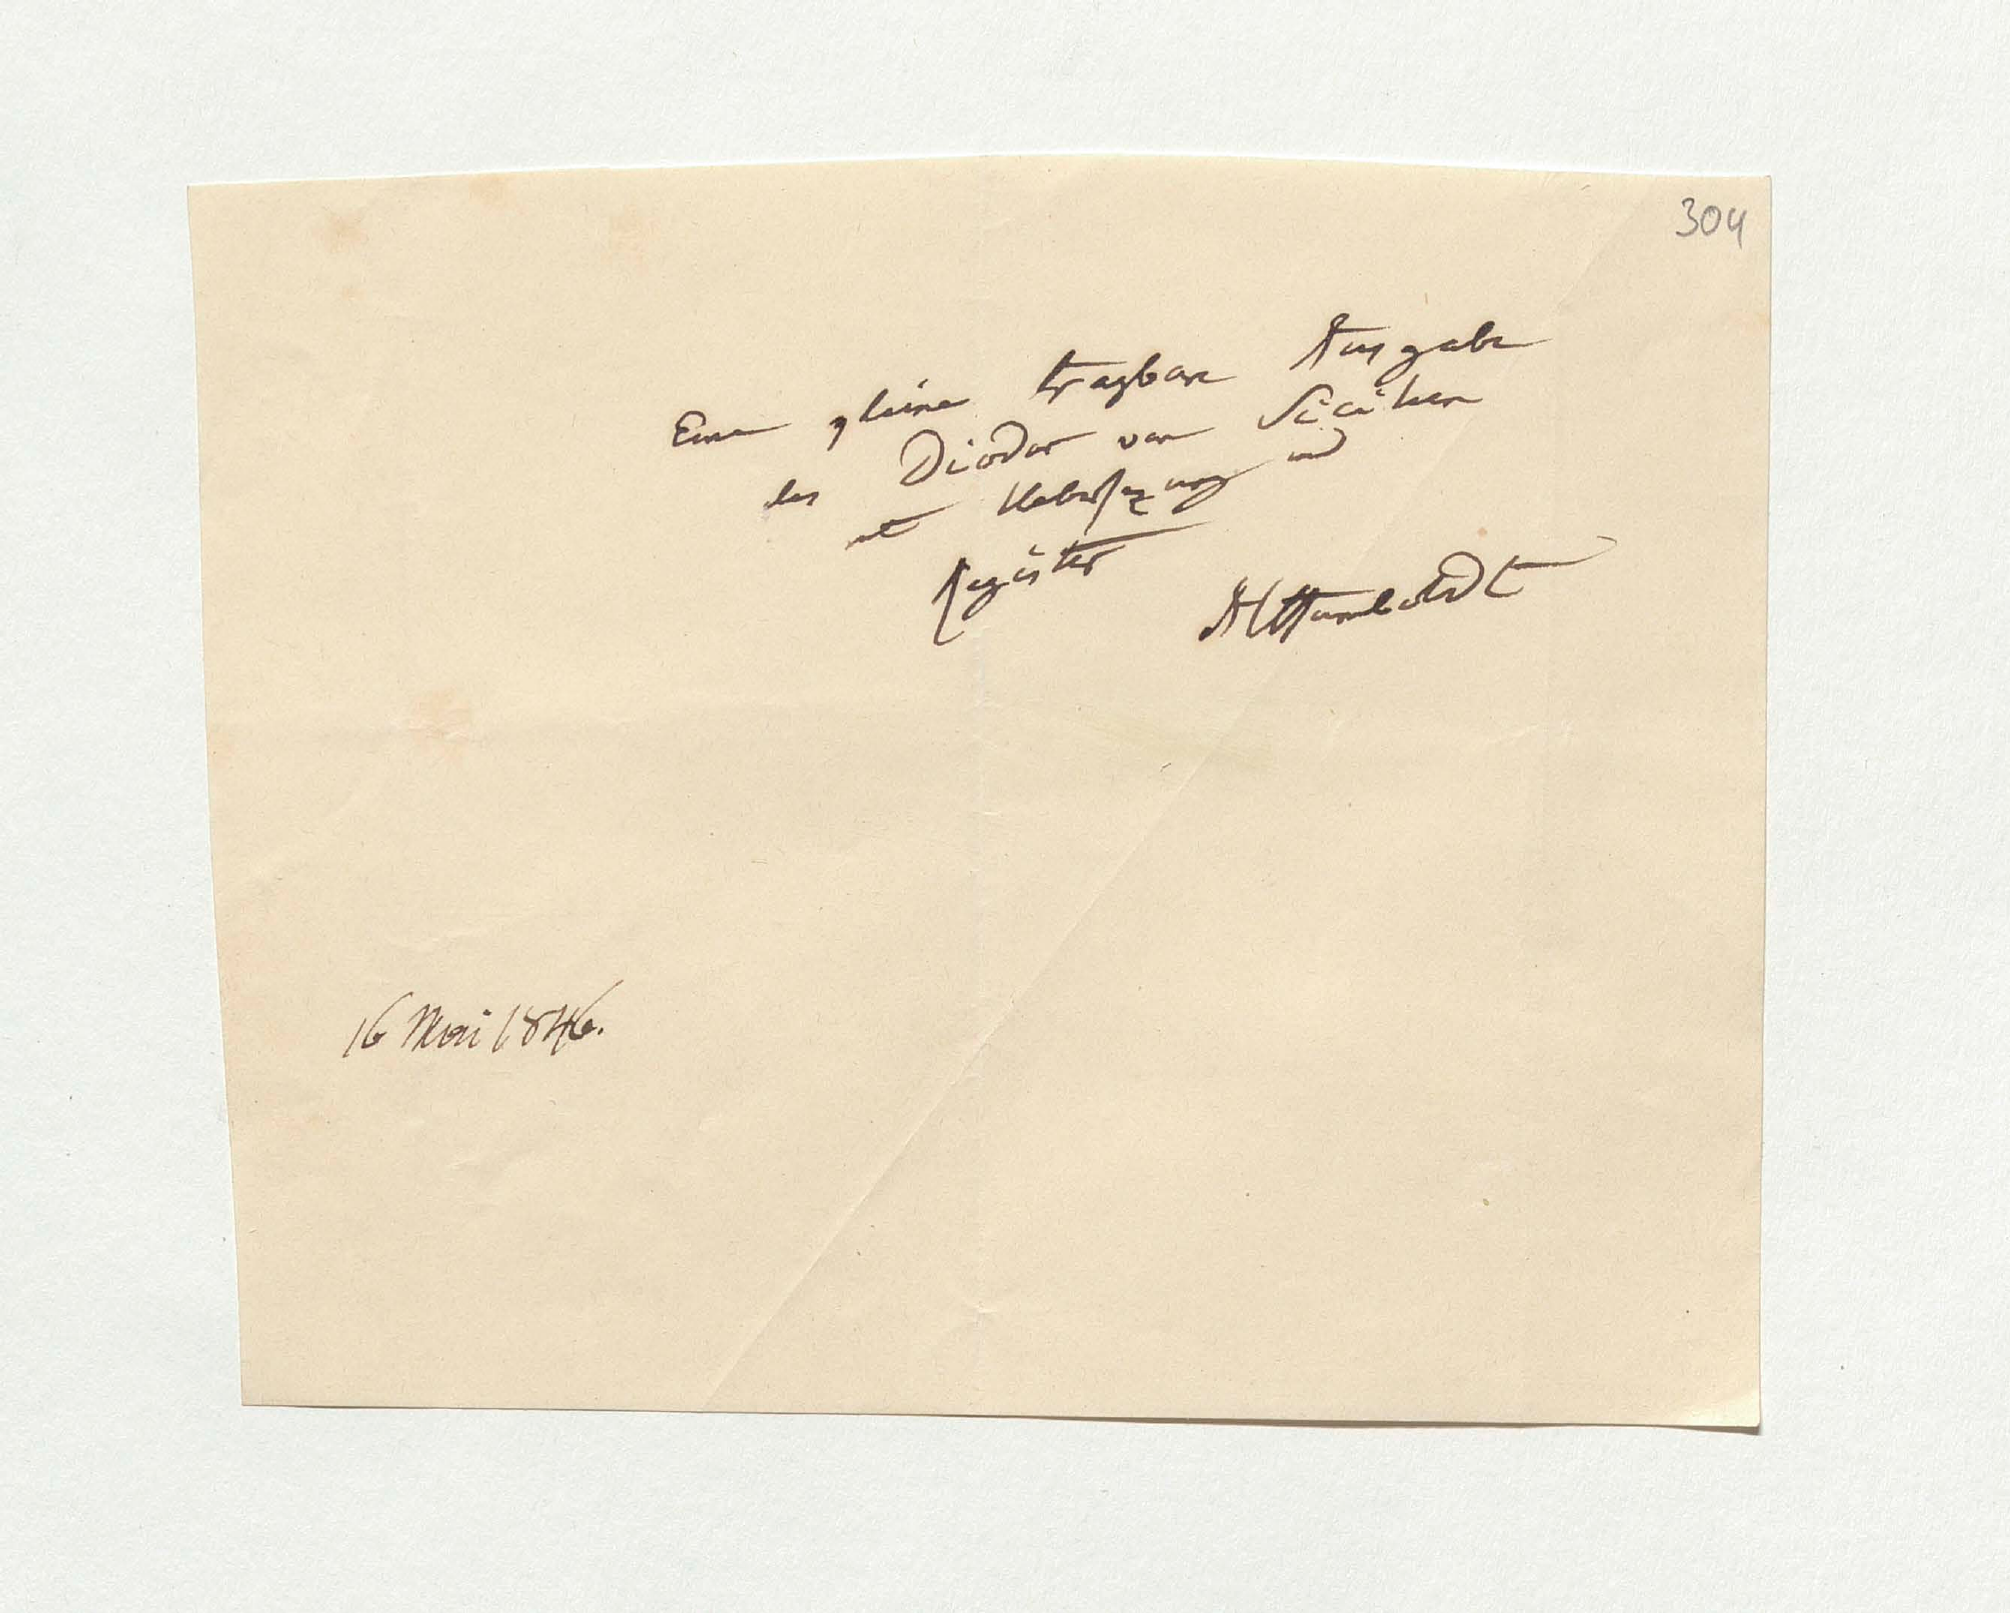 304
Eine kleine tragbare Ausgabe
des Diodor von Sicilien
mit Uebersezung und
Register
AlHumboldt
16 Mai 1846.